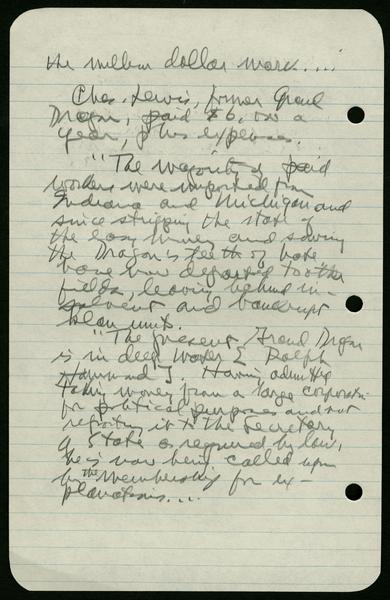 the million dollar mark....
Chas. Lewis, former Grand
Dragon, paid $6,000 a
year, plus expenses.
"The majority of paid
workers were imported from
Indiana and Michigan and
since stripping the state of
the easy money and sowing
the Dragon's teeth of hate
have now departed to other
fields, leaving behind in-
solvent and bankrupt
klan units.
"The present, Grand Dragon
is in deep water &
Hammond J. Having admitted
taking money from a large corporation
for political purposes and not
reporting it to the Secretary
of State as required by law,
he is now being called upon
by the membership for ex-
planations....